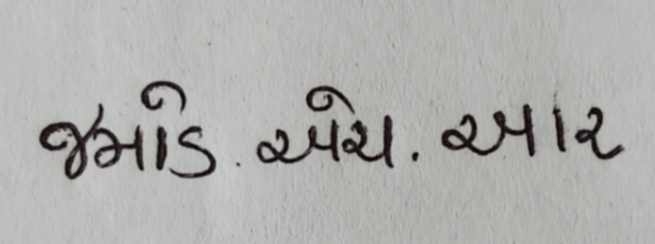 જમોડ. એચ. આર